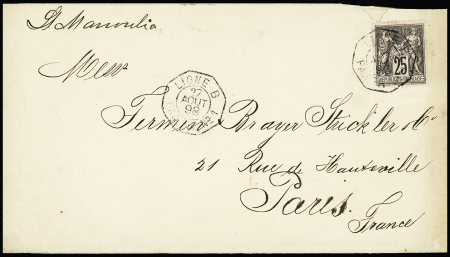 St Marcoulia
Messrs
LIGNE B
27
AOUT
98
25
Fermin Brayer Stückler & Co
21 Rue de Hauteville
Paris.
France